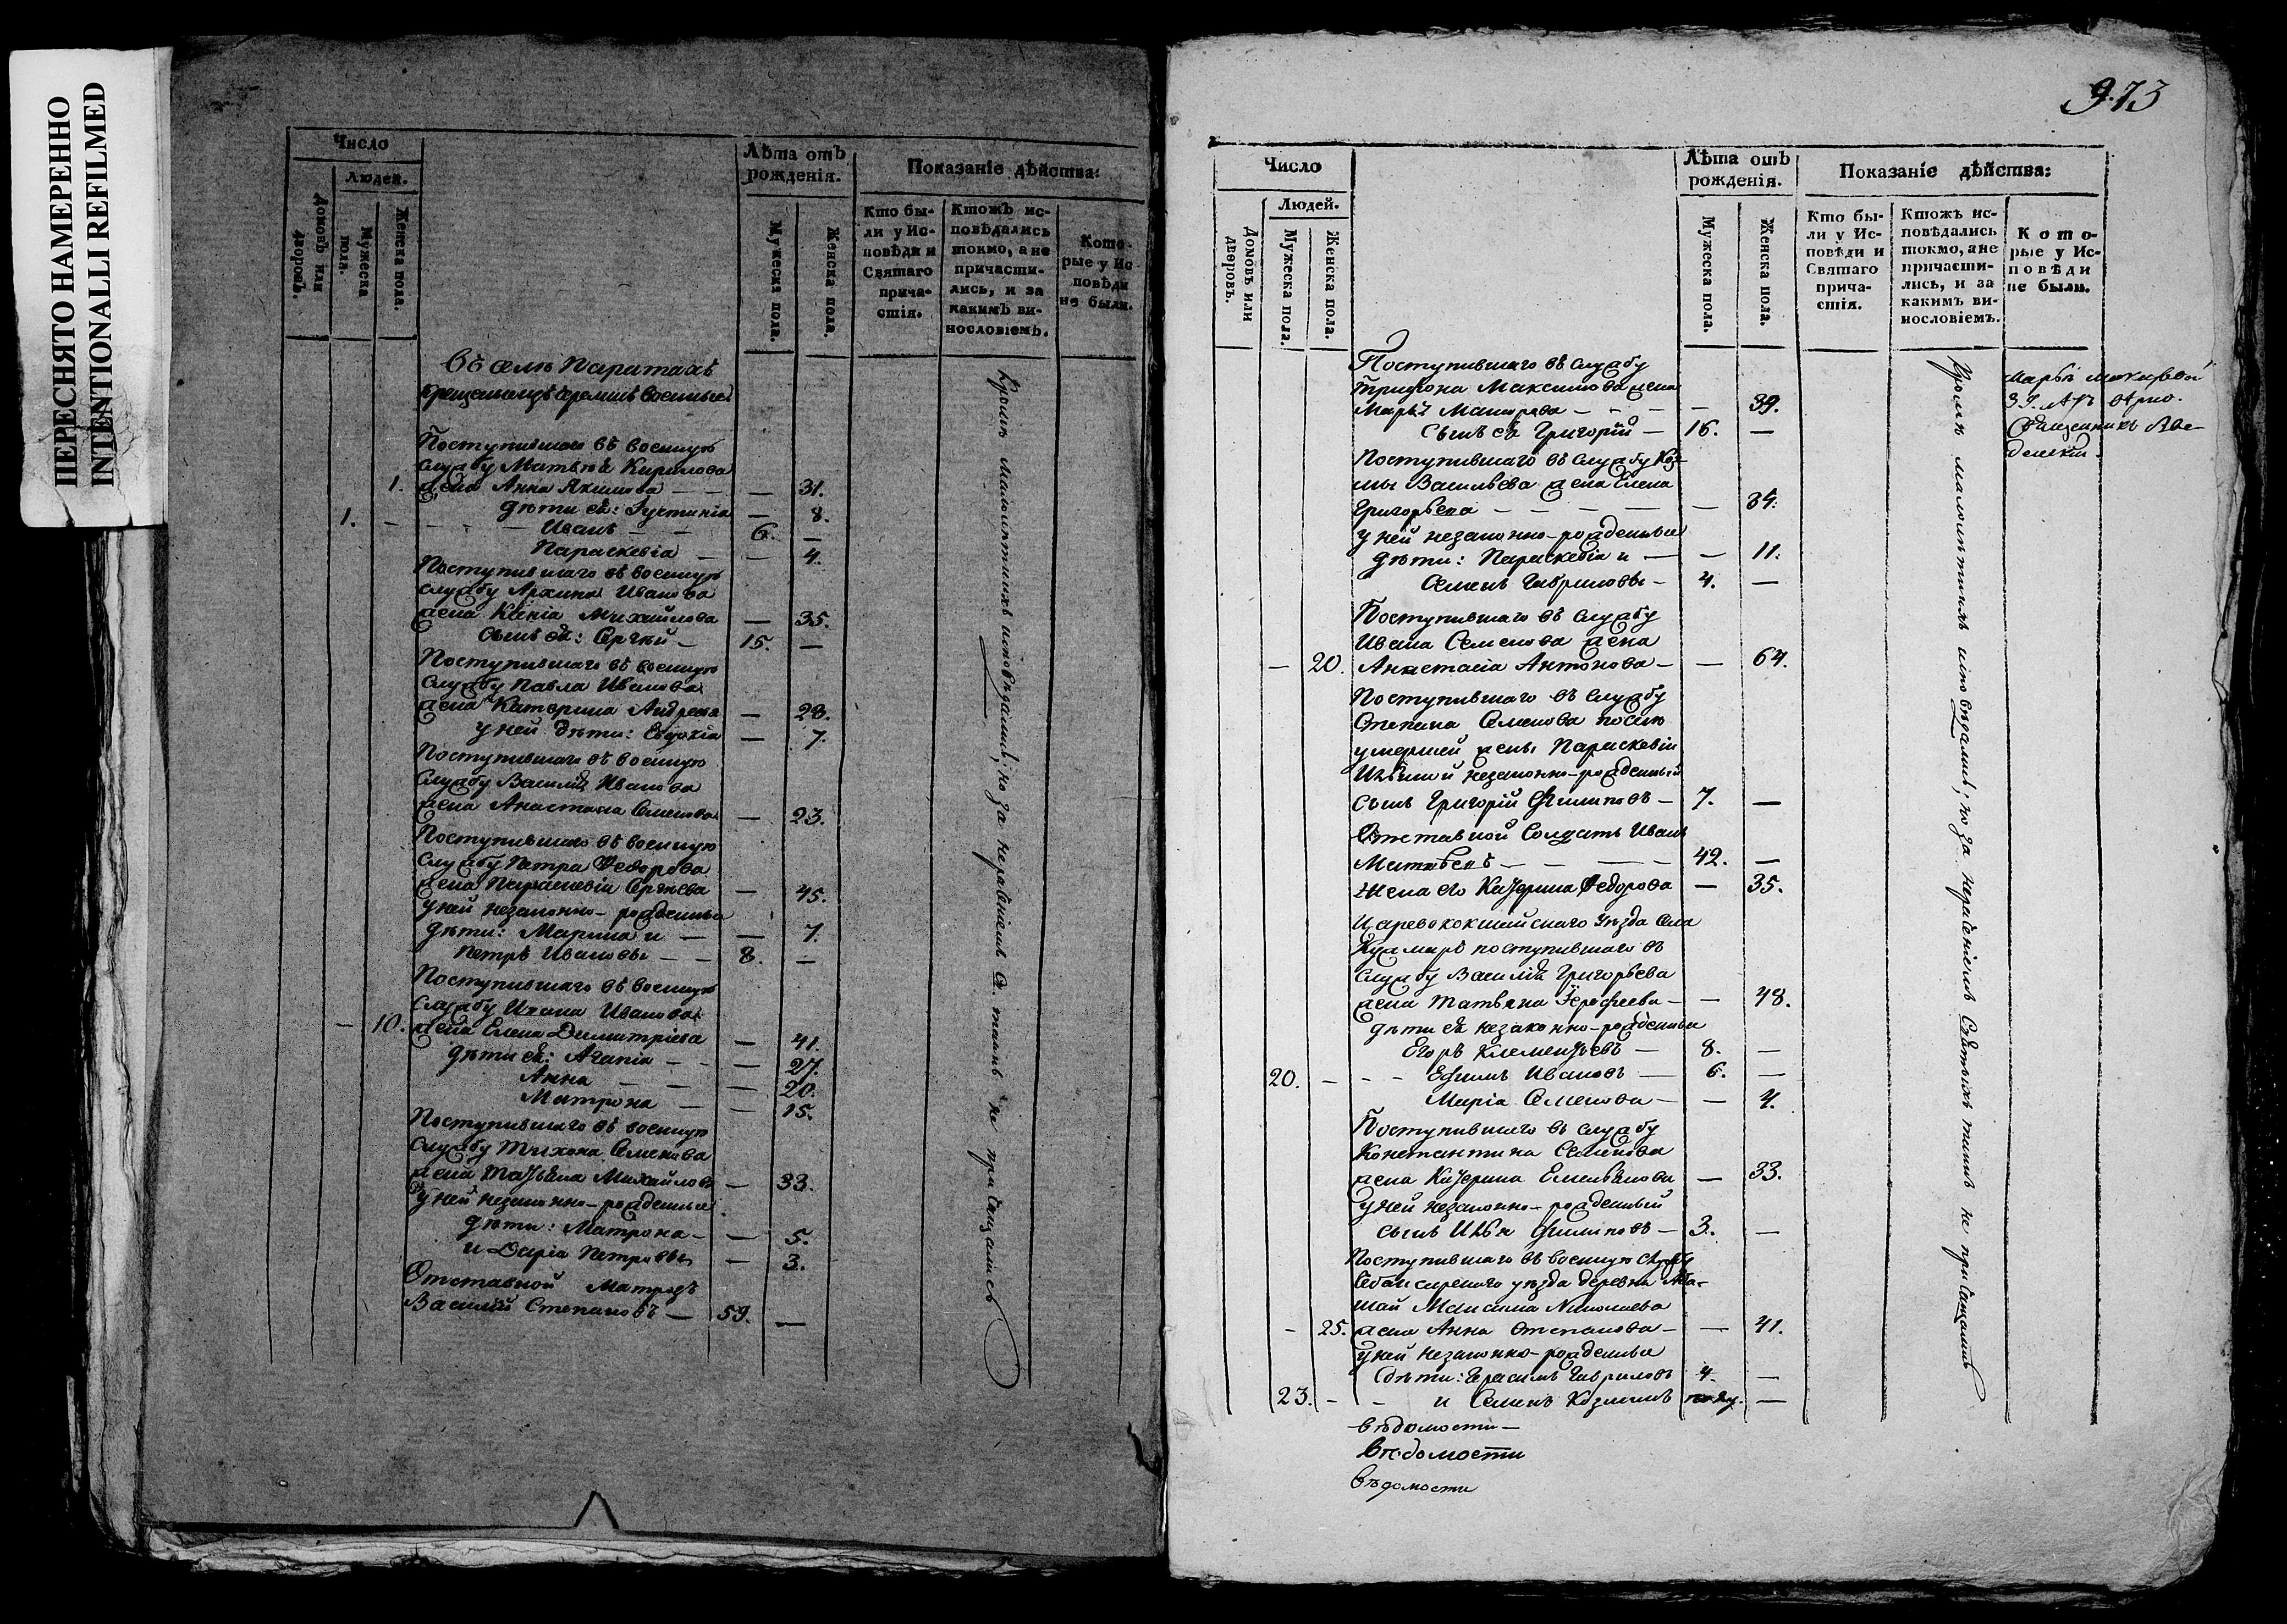 ПЕРЕСНЯТО НАМЕРЕННО
INTENTIONALLI REFILMED
Число
Людей.
Домовъ или дворовъ.
Мужеска пола.
Женска пола.
Лѣта отъ рожденія.
Мужеска пола.
Женска пола.
Показаніе дѣйства:
Кто бы-
ли у Ис-
повѣди и
Святаго
прича-
стія.
Ктожъ ис-
повѣдались
токмо, а не
причасти-
лись, и за
какимъ ви-
нословіемъ.
Кото-
рые у Ис-
повѣди
не были.
Въ селѣ Паратахъ
Поступившаго въ военную
службу Матвѣя Кирилова
1. жена Анна Якимова — — — 31.
дѣти её: Іустинія — 8.
1. — Иванъ — 6. —
Параскевія — — 4.
Поступившаго въ военную
службу Архипа Иванова
жена Ксенія Михайлова — 35.
сынъ её: Сергѣй — 15. —
Поступившаго въ военную
службу Павла Иванова
жена Катерина Андреева — 28.
у ней дѣти: Евдокія — 7.
Поступившаго въ военную
службу Василія Иванова
жена Анастасія Семенова — 23.
Поступившаго въ военную
службу Петра Федорова
жена Параскевія Сергѣева — 45.
у ней незаконно-рожденные
дѣти: Марина и — — 7.
Петръ Ивановы — — 8. —
Поступившаго въ военную
службу Ивана Иванова
— 10. жена Елена Димитріева — 41.
дѣти её: Агапія — — 27.
Анна — — — 20.
Матрона — — 15.
Поступившаго въ военную
службу Тихона Семенова
жена Татьяна Михайлова — 33.
у ней незаконно-рожденные
дѣти: Матрона — — 5.
и Дарія Петровы — 3.
Отставной Матрозъ
Василій Степановъ — 59. —
Кромѣ малолѣтнихъ исповѣдались; но за нерадѣніемъ С. таинъ не пріобщались
973
Число
Людей.
Домовъ или дворовъ.
Мужеска пола.
Женска пола.
Лѣта отъ рожденія.
Мужеска пола.
Женска пола.
Показаніе дѣйства:
Кто бы-
ли у Ис-
повѣди и
Святаго
прича-
стія.
Ктожъ ис-
повѣдались
токмо, а не
причасти-
лись, и за
какимъ ви-
нословіемъ.
Кото-
рые у Ис-
повѣди
не были.
Поступившаго въ службу
Трифона Максимова жена
Марья — — — 39.
сынъ её Григорій — 16. —
Поступившаго въ службу Коз-
мы Васильева жена Елена
Григорьева — — — — — 34.
у ней незаконно-рожденные
дѣти: Параскевія и — — 11.
Семенъ Гавриловы — 4. —
Поступившаго въ службу
Ивана Семенова жена
— 20. Анастасія Антонова — — 64.
Поступившаго въ службу
Степана Семенова послѣ
умершей жены Параскевіи
незаконно-рожденный
сынъ Григорій Филиповъ — 7. —
Отставной Солдатъ Иванъ
Матвѣевъ — — — — 42. —
Жена его Катерина Федорова — 35.
Царевококшайскаго уѣзда села
поступившаго въ
службу Василія Григорьева
жена Татьяна Ерофеева — — 48.
дѣти её незаконно-рожденные
Егоръ Клементьевъ — 8. —
20. — — — Ефимъ Ивановъ — 6. —
Марія Семенова — — 4.
Поступившаго въ службу
Константина Семенова
жена Катерина Емельянова — 33.
у ней незаконно-рожденный
сынъ Илья Филиповъ — 3. —
Поступившаго въ военную службу
Чебаксарскаго уѣзда деревни
Максима Николаева
— 25. жена Анна Степанова — — 41.
у ней незаконно-рожденные
дѣти: Герасимъ Гавриловъ 4. —
23. — — и Семенъ Козминъ полу. —
вѣдомости —
Вѣдомости
вѣдомости
Кромѣ малолѣтнихъ исповѣдались; но за нерадѣніемъ Святыхъ таинъ не пріобщались
39. лѣтъ вѣрно.
Священникъ